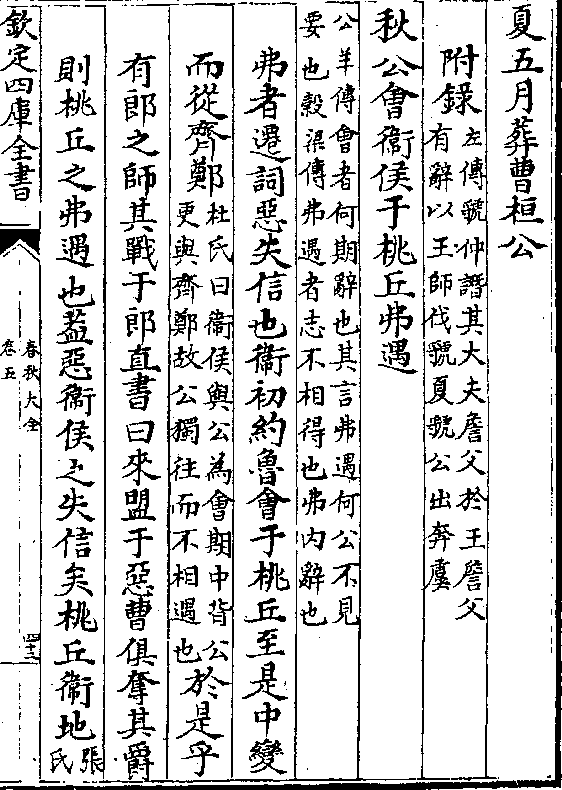 夏五月葬曹桓公
附録
左傳虢仲譖其大夫詹父於王詹父
有辭以王師伐虢夏虢公出奔虞
秋公會衞侯于桃丘弗遇
公羊傳會者何期辭也其言弗遇何公不見
要也榖梁傳弗遇者志不相得也弗内辭也
弗者遷詞惡失信也衞初約魯會于桃丘至是中變
而從齊鄭
杜氏曰衞侯與公為會期中背公
更與齊鄭故公獨往而不相遇也
於是乎
有郎之師其戰于郎直書曰來盟于惡曹俱奪其爵
則桃丘之弗遇也葢惡衞侯之失信矣桃丘衞地
張
氏
欽定四庫全書
春秋大全
卷五